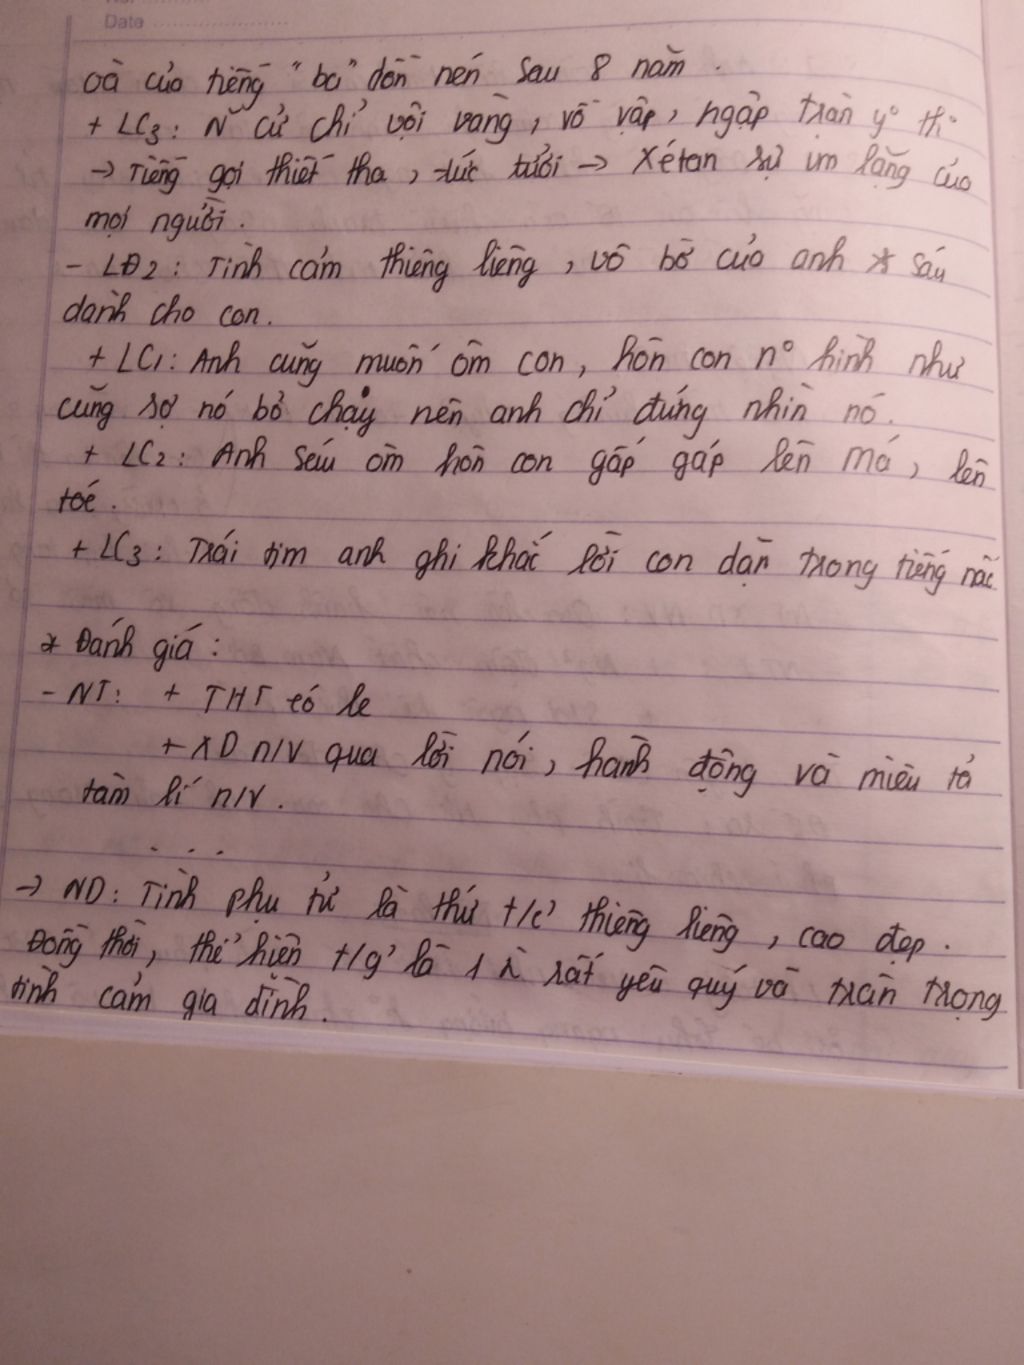 Date
oà của tiếng "ba" dồn nén sau 8 năm.
+ LC3: N~ cử chỉ vội vàng, vồ vập, ngập tràn y° th°
→ Tiếng gọi thiết tha, tức tưởi → Xé tan sự im lặng của
mọi người.
- LĐ2: Tình cảm thiêng liêng, vô bờ của anh Sáu
dành cho con.
+ LC1: Anh cũng muốn ôm con, hôn con n° hình như
cũng sợ nó bỏ chạy nên anh chỉ đứng nhìn nó.
+ LC2: Anh Sáu ôm hôn con gấp gáp lên má, lên
tóc.
+ LC3: Trái tim anh ghi khắc lời con dặn trong tiếng nấc
* Đánh giá:
- NT: + THT éó le
+ XD n/v qua lời nói, hành động và miêu tả
tâm lí n/v.
. . .
→ ND: Tình phụ tử là thứ t/c' thiêng liêng, cao đẹp.
Đồng thời, thể hiện t/g' là 1 rất yêu quý và trân trọng
tình cảm gia đình.